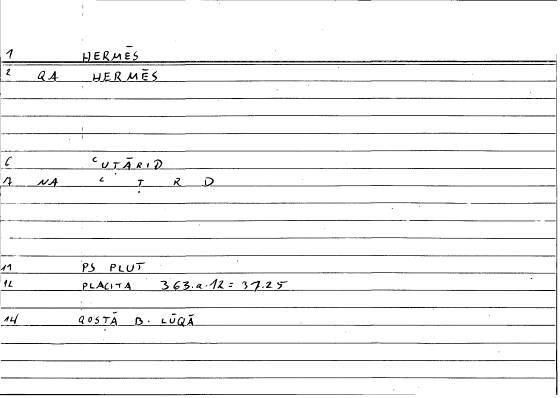 1 HERMĒS
2 QA HERMĒS
6 ʿUṬĀRID
7 NA ʿ Ṭ R D
11 PS PLUT
12 PLACITA 363.a.12 = 37.25
14 QOSṬĀ B. LŪQĀ